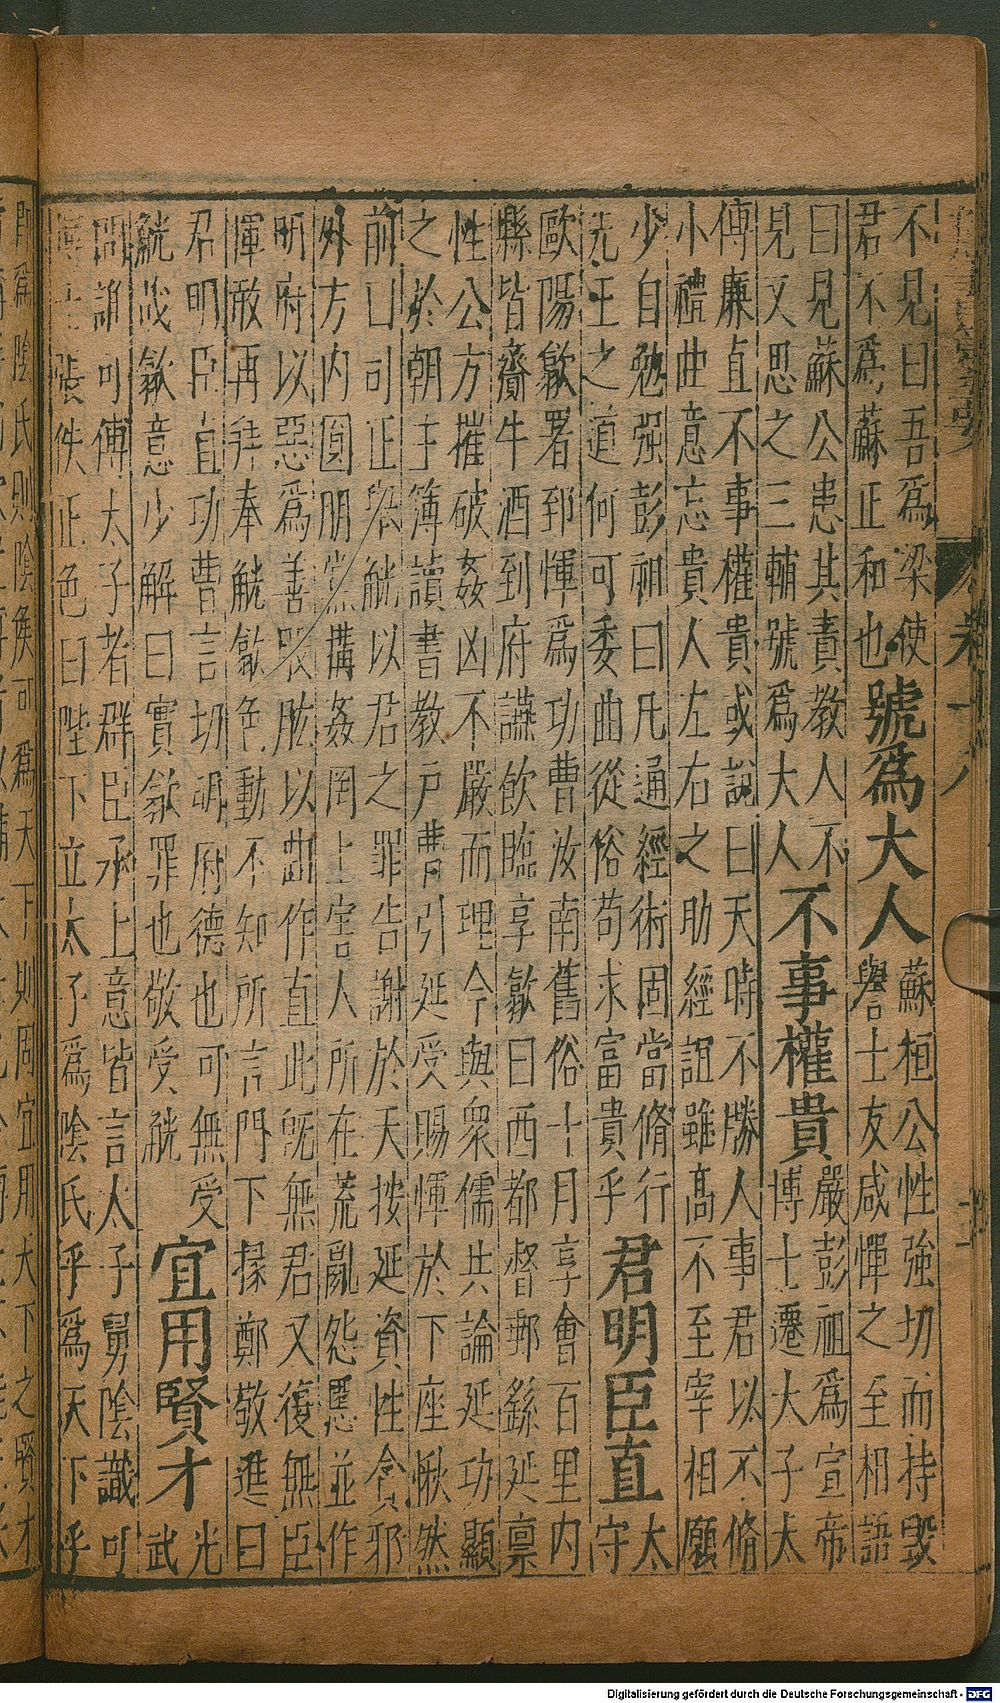 不見曰吾爲梁使
君不爲蘇正和也
號爲大人
蘇桓公性強切而持毀
譽士友咸憚之至相語
曰見蘇公患其責教人不
見又思之三輔號爲大人
不事權貴
嚴彭祖爲宣帝
博士遷太子太
傅廉直不事權貴或說曰天時不勝人事君以不脩
小禮曲意忘貴人左右之助經誼雖高不至宰相願
少自勉強彭祖曰凡通經術固當脩行
先王之道何可委曲從俗苟求富貴乎
君明臣直
太
守
歐陽歙署郅惲爲功曹汝南舊俗十月享會百里內
縣皆齎牛酒到府讌飲臨享歙曰西都督郵繇延稟
性公方摧破姦凶不嚴而理今與衆儒共論延功顯
之於朝主簿讀書教戶曹引延受賜惲於下座愀然
前曰司正舉觥以君之罪告謝於天按延資性貪邪
外方內圓朋黨搆姦罔上害人所在荒亂怨慝並作
明府以惡爲善股肱以曲作直此旣無君又復無臣
惲敢再拜奉觥歙色動不知所言門下掾鄭敬進曰
君明臣直功曹言切明府德也可無受
觥哉歙意少解曰實歙罪也敬受觥
宜用賢才
光
武
問誰可傅太子者群臣承上意皆言太子舅陰識可
博士張佚正色曰陛下立太子爲陰氏乎爲天下乎
卽爲陰氏則陰侯可爲天下則固宜用天下之賢才
Digitalisierung gefördert durch die Deutsche Forschungsgemeinschaft - DFG